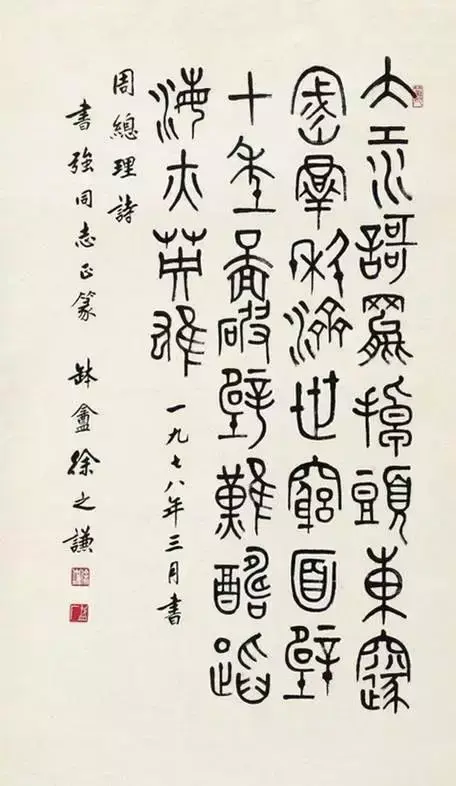 大江謌罷掉頭東邃
密羣科濟世窮面壁
十年圖破壁難酬蹈
海亦英雄 一九七八年三月書
周總理詩
書強同志正篆 缽盦徐之謙